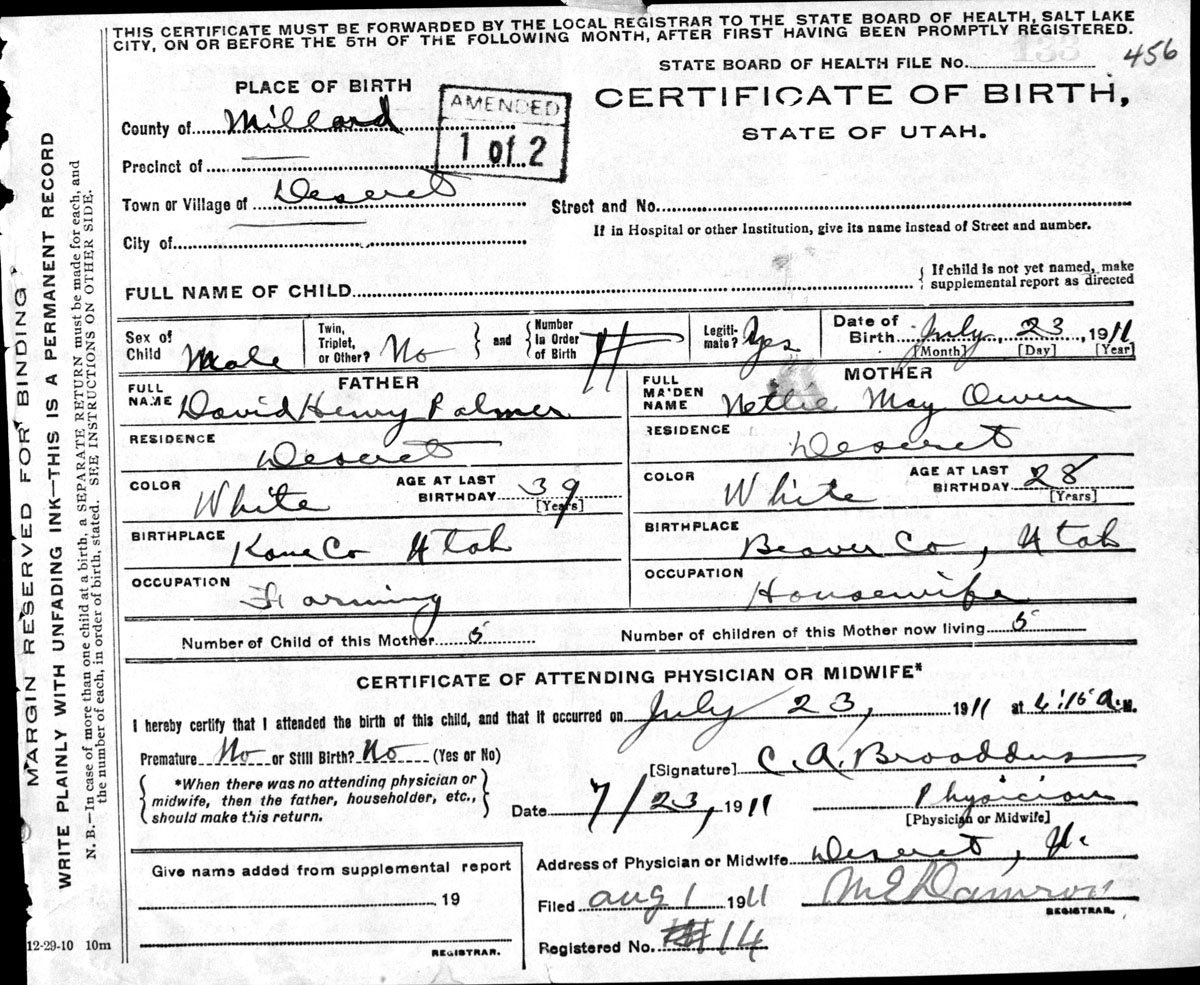 THIS CERTIFICATE MUST BE FORWARDED BY THE LOCAL REGISTRAR TO THE STATE BOARD OF HEALTH, SALT LAKE
CITY, ON OR BEFORE THE 5TH OF THE FOLLOWING MONTH, AFTER FIRST HAVING BEEN PROMPTLY REGISTERED.
STATE BOARD OF HEALTH FILE No. 133 456
PLACE OF BIRTH
CERTIFICATE OF BIRTH,
STATE OF UTAH.
AMENDED
1 of 2
County of Millard
Precinct of
Town or Village of Deseret
Street and No.
City of
If in Hospital or other Institution, give its name instead of Street and number.
FULL NAME OF CHILD
{ If child is not yet named, make
supplemental report as directed
Sex of
Child Male
Twin,
Triplet,
or Other? No
} and {
Number
in Order
of Birth
Legiti-
mate? Yes
Date of
Birth July, 23, 1911
[Month] [Day] [Year]
FATHER
FULL
NAME David Henry Palmer
RESIDENCE
Deseret
COLOR White
AGE AT LAST
BIRTHDAY 39
[Years]
BIRTHPLACE
Kane Co Utah
OCCUPATION
Farming
MOTHER
FULL
MAIDEN
NAME Nettie May Owen
RESIDENCE
Deseret
COLOR White
AGE AT LAST
BIRTHDAY 28
[Years]
BIRTHPLACE
Beaver Co, Utah
OCCUPATION
Housewife
Number of Child of this Mother 5
Number of children of this Mother now living 5
CERTIFICATE OF ATTENDING PHYSICIAN OR MIDWIFE*
I hereby certify that I attended the birth of this child, and that it occurred on July 23, 1911 at 4:15 A.M.
Premature No or Still Birth? No (Yes or No)
{ *When there was no attending physician or
midwife, then the father, householder, etc.,
should make this return. }
[Signature] C. A. Broaddus
Date 7/23, 1911
Physician
[Physician or Midwife]
Address of Physician or Midwife Deseret, U.
Give name added from supplemental report
19
REGISTRAR.
Filed Aug 1 1911
M E Damron
REGISTRAR.
Registered No. 14
12-29-10 10m
MARGIN RESERVED FOR BINDING
WRITE PLAINLY WITH UNFADING INK—THIS IS A PERMANENT RECORD
N. B.—In case of more than one child at a birth, a SEPARATE RETURN must be made for each, and
the number of each, in order of birth, stated. SEE INSTRUCTIONS ON OTHER SIDE.